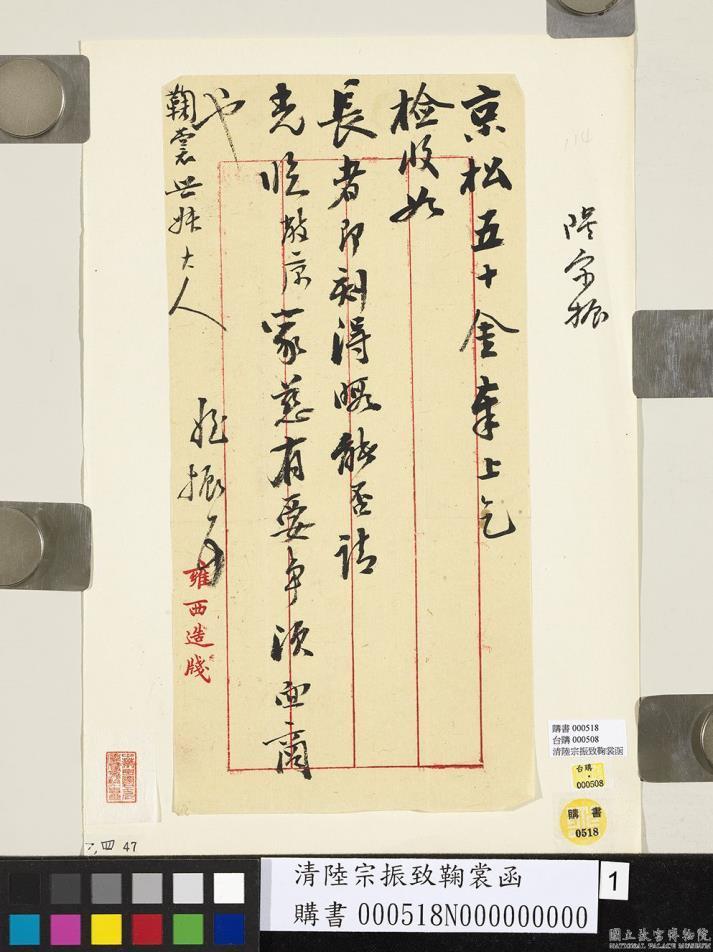 京松五十金奉上乞
檢收如
長者即刻得暇能否請
光臨敝寓家慈有要事須面商
也
鞠裳世姊大人
姪振
雍西造牋
陸宗振
114
購書 000518
台購 000508
清陸宗振致鞠裳函
台購
000508
購書
0518
四 47
清陸宗振致鞠裳函
購書 000518N000000000
1
國立故宮博物院
NATIONAL PALACE MUSEUM